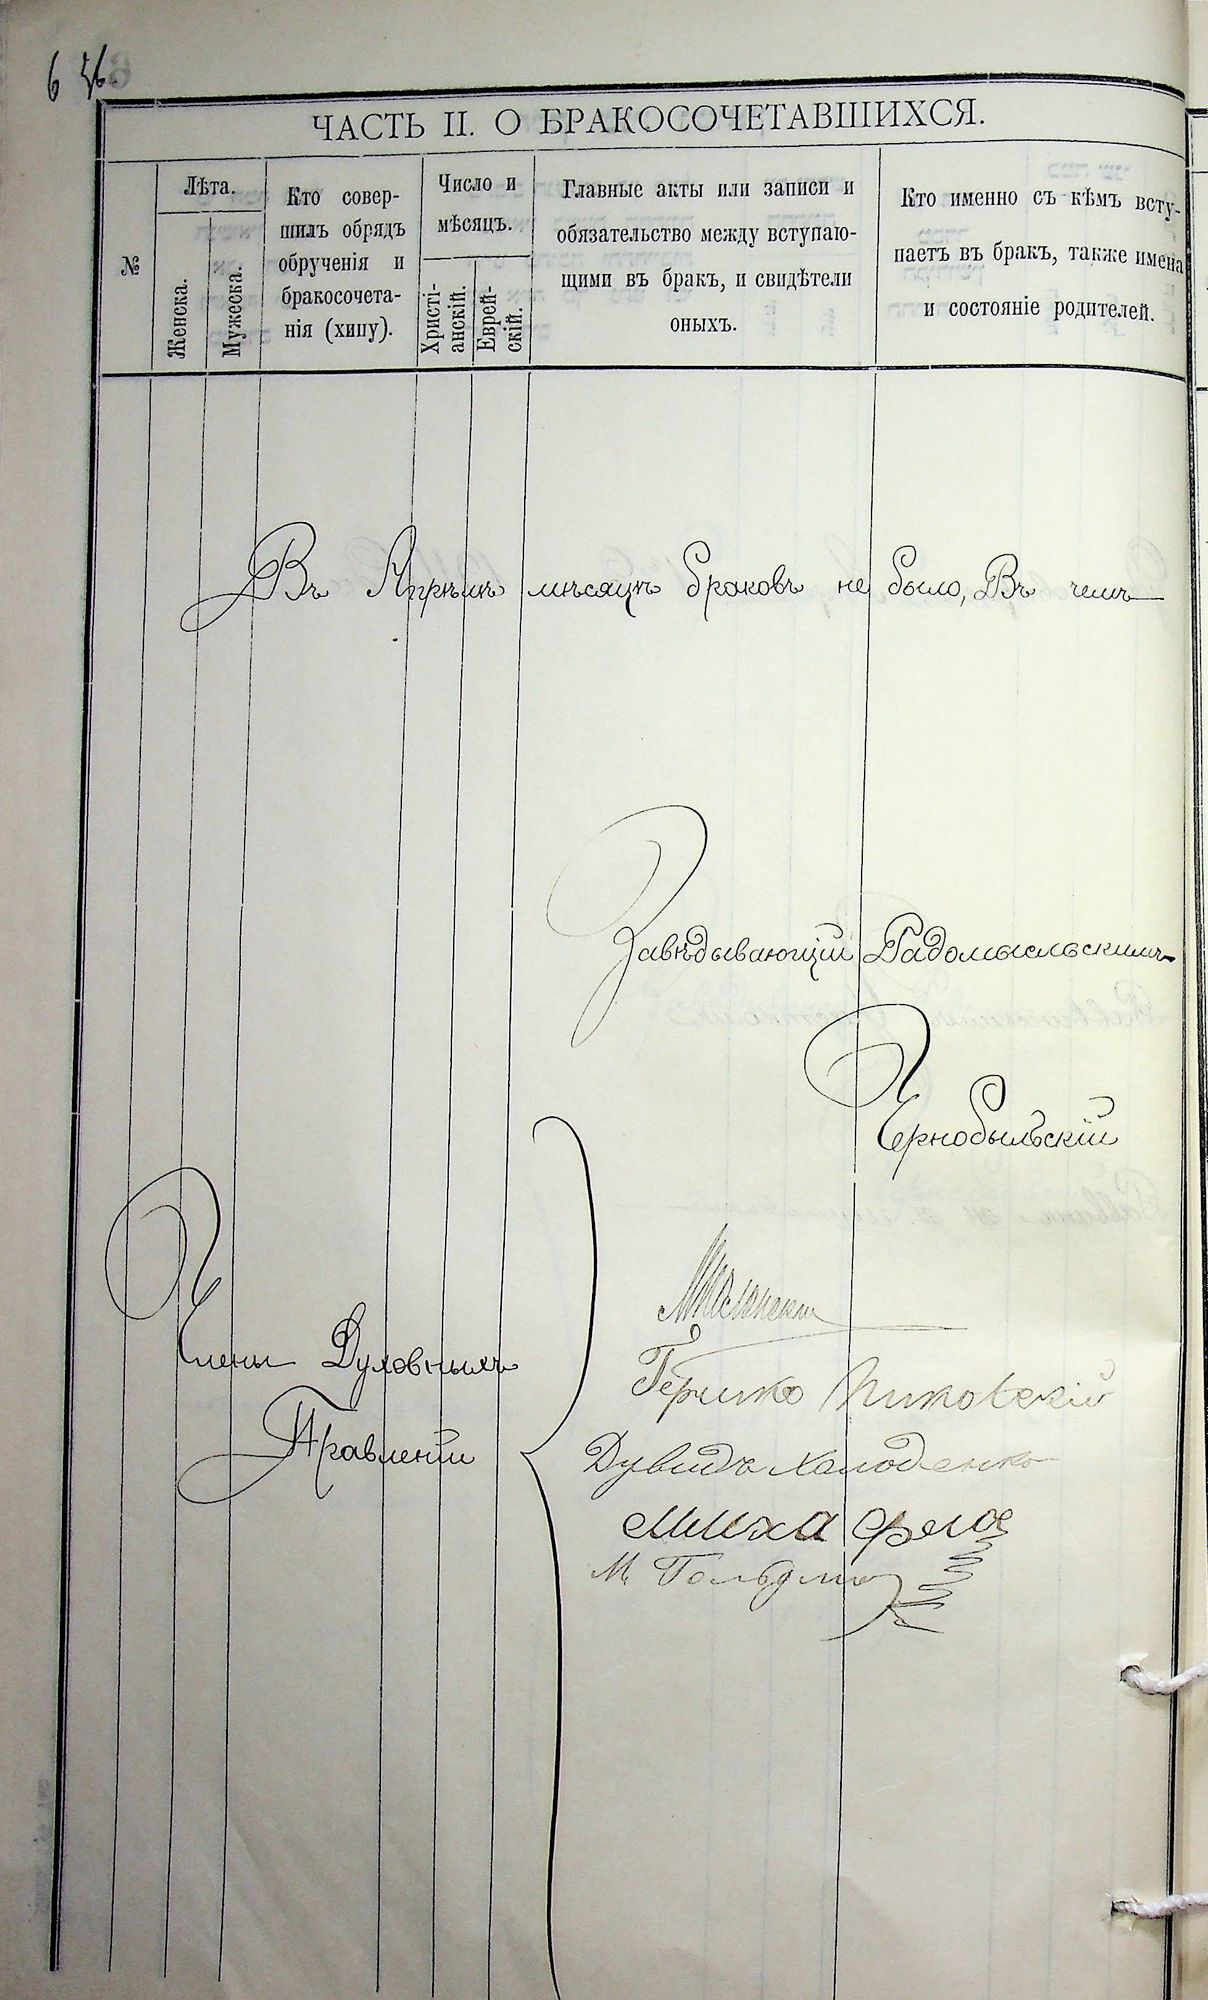 6
ЧАСТЬ II. О БРАКОСОЧЕТАВШИХСЯ.
№
Лѣта.
Женска.
Мужеска.
Кто совер-
шилъ обрядъ
обрученія и
бракосочета-
нія (хипу).
Число и
мѣсяцъ.
Христі-
анскій.
Еврей-
скій.
Главные акты или записи и
обязательство между вступаю-
щими въ бракъ, и свидѣтели
оныхъ.
Кто именно съ кѣмъ всту-
паетъ въ бракъ, также имена
и состояніе родителей.
Въ Апрѣлѣ мѣсяцѣ браковъ не было, Въ чемъ
Завѣдывающій Радомысльскимъ
Чернобыльскій
Члены Духовныхъ
Правленій
Гершко
Дувидъ Холоденко
Миха
М. Гольдман